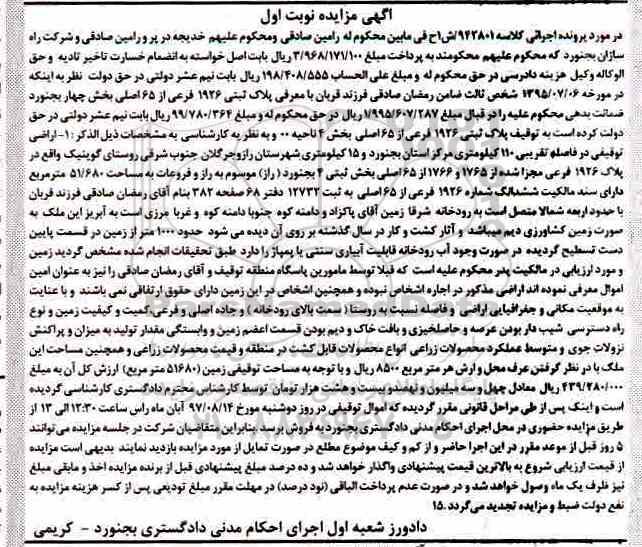 آگهی مزایده نوبت اول
در مورد پرونده اجرائی کلاسه ۹۴۳۸۰۱/ش۱ح فی مابین محکوم له رامین صادقی ومحکوم علیهم خدیجه در پر و رامین صادقی و شرکت راه
سازان بجنورد که محکوم علیهم محکومند به پرداخت مبلغ ۳/۹۶۸/۱۷۱/۱۰۰ ریال بابت اصل خواسته به انضمام خسارت تاخیر تادیه و حق
الوکاله وکیل هزینه دادرسی در حق محکوم له و مبلغ علی الحساب ۱۹۸/۴۰۸/۵۵۵ ریال بابت نیم عشر دولتی در حق دولت نظر به اینکه
در مورخه ۱۳۹۵/۰۷/۰۶ شخص ثالث ضامن رمضان صادقی فرزند قربان با معرفی پلاک ثبتی ۱۹۲۶ فرعی از ۶۵ اصلی بخش چهار بجنورد
ضمانت بدهی محکوم علیه را در قبال مبلغ ۱/۹۹۵/۶۰۷/۲۸۷ ریال در حق محکوم له و مبلغ ۹۹/۷۸۰/۳۶۴ ریال بابت نیم عشر دولتی در حق
دولت کرده است به توقیف پلاک ثبتی ۱۹۲۶ فرعی از ۶۵ اصلی بخش ۴ ناحیه ۰۰ و به نظریه کارشناسی به مشخصات ذیل الذکر : ۱- اراضی
توقیفی در فاصله تقریبی ۱۱۰ کیلومتری مرکز استان بجنورد و ۱۵ کیلومتری شهرستان رازوجرگلان جنوب شرقی روستای گوینیک واقع در
پلاک ۱۹۲۶ فرعی مجزا شده از ۱۷۶۵ و ۱۷۶۶ از ۶۵ اصلی بخش ثبتی ۴ بجنورد ( راز) موسوم به راز و فروعات به مساحت ۵۱/۶۸۰ مترمربع
دارای سند مالکیت ششدانگ شماره ۱۹۲۶ فرعی از ۶۵ اصلی به ثبت ۱۲۷۳۲ دفتر ۶۸ صفحه ۳۸۲ بنام آقای رمضان صادقی فرزند قربان
با حدود اربعه شمالا متصل است به رودخانه شرقا زمین آقای پاکزاد و دامنه کوه جنوبا دامنه کوه و غربا مرزی است به آبریز این ملک به
صورت زمین کشاورزی دیم میباشد و آثار کشت و کار در سال گذشته بر روی آن دیده می شود حدود ۱۰۰۰ متر از زمین در قسمت پایین
دست تسطیح گردیده در صورت وجود آب رودخانه قابلیت آبیاری سنتی یا پمپاژ را دارد طبق تحقیقات انجام شده مشخص گردید زمین
و مورد ارزیابی در مالکیت پدر محکوم علیه است که قبلا توسط مامورین پاسگاه منطقه توقیف و آقای رمضان صادقی را نیز به عنوان امین
اموال معرفی نموده اند اراضی مذکور در اجاره اشخاص نبوده و همچنین اشخاص در این زمین دارای حقوق ارتفاقی نمی باشند و با عنایت
به موقعیت مکانی و جغرافیایی اراضی و فاصله نسبت به روستا ( سمت بالای رودخانه ) و جاده اصلی و فرعی،کمیت و کیفیت زمین و نوع
راه دسترسی شیب دار بودن عرصه و حاصلخیزی و بافت خاک و دیم بودن قسمت اعضم زمین و وابستگی مقدار تولید به میزان و پراکنش
نزولات جوی و متوسط عملکرد محصولات زراعی انواع محصولات قابل کشت در منطقه و قیمت محصولات زراعی و همچنین مساحت این
ملک با در نظر گرفتن عرف محل و ارش هر متر مربع ۸۵۰۰ ریال و با توجه به مساحت توقیفی زمین (۵۱۶۸۰ متر مربع) ارزش کل آن به مبلغ
۴۳۹/۲۸۰/۰۰۰ ریال معادل چهل وسه میلیون و نهصد وبیست و هشت هزار تومان توسط کارشناس محترم دادگستری کارشناسی گردیده
است و اینک پس از طی مراحل قانونی مقرر گردیده که اموال توقیفی در روز دوشنبه مورخ ۹۷/۰۸/۱۴ آبان ماه راس ساعت ۱۲:۳۰ الی ۱۳ از
طریق مزایده حضوری در محل اجرای احکام مدنی دادگستری بجنورد به فروش برسد بنابراین متقاضیان شرکت در جلسه مزایده می‌توانند
۵ روز قبل از موعد مقرر در این اجرا حاضر و از کم و کیف موضوع مطلع در صورت تمایل از مورد مزایده بازدید نمایند بدیهی است مزایده
از قیمت ارزیابی شروع به بالاترین قیمت پیشنهادی واگذار خواهد شد و ده درصد مبلغ پیشنهادی قبل از برنده مزایده اخذ و مابقی مبلغ
نیز ظرف یک ماه وصول خواهد شد و در صورت عدم پرداخت الباقی (نود درصد) در مهلت مقرر مبلغ تودیعی پس از کسر هزینه مزایده به
نفع دولت ضبط و مزایده تجدید می‌گردد .۱۵
دادورز شعبه اول اجرای احکام مدنی دادگستری بجنورد - کریمی